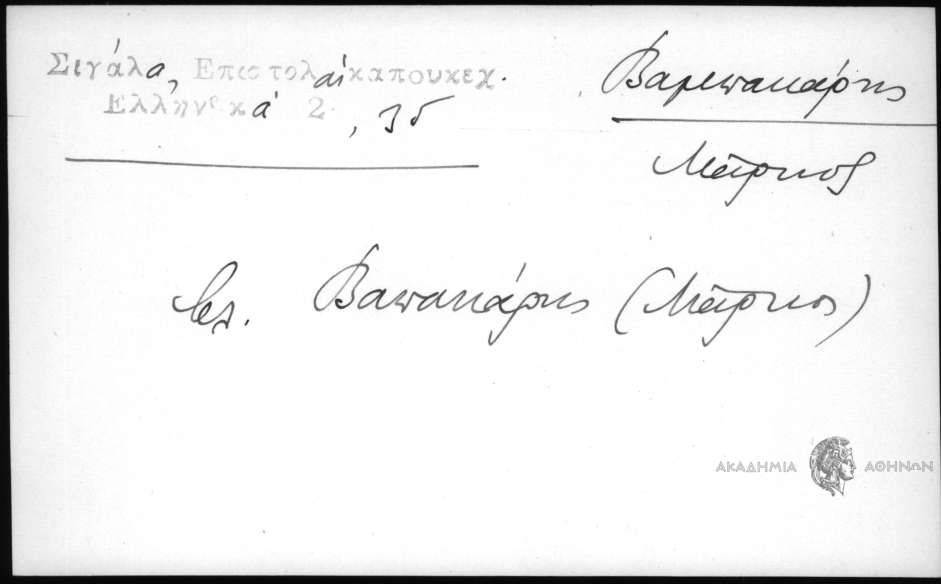 Σιγάλα, Επιστολαί καπουκεχ.
Ελληνικά 2, 35
Βαμπακάρης
Μᾶρκος
βλ. Βαπακάρης (Μᾶρκος)
ΑΚΑΔΗΜΙΑ ΑΘΗΝΩΝ